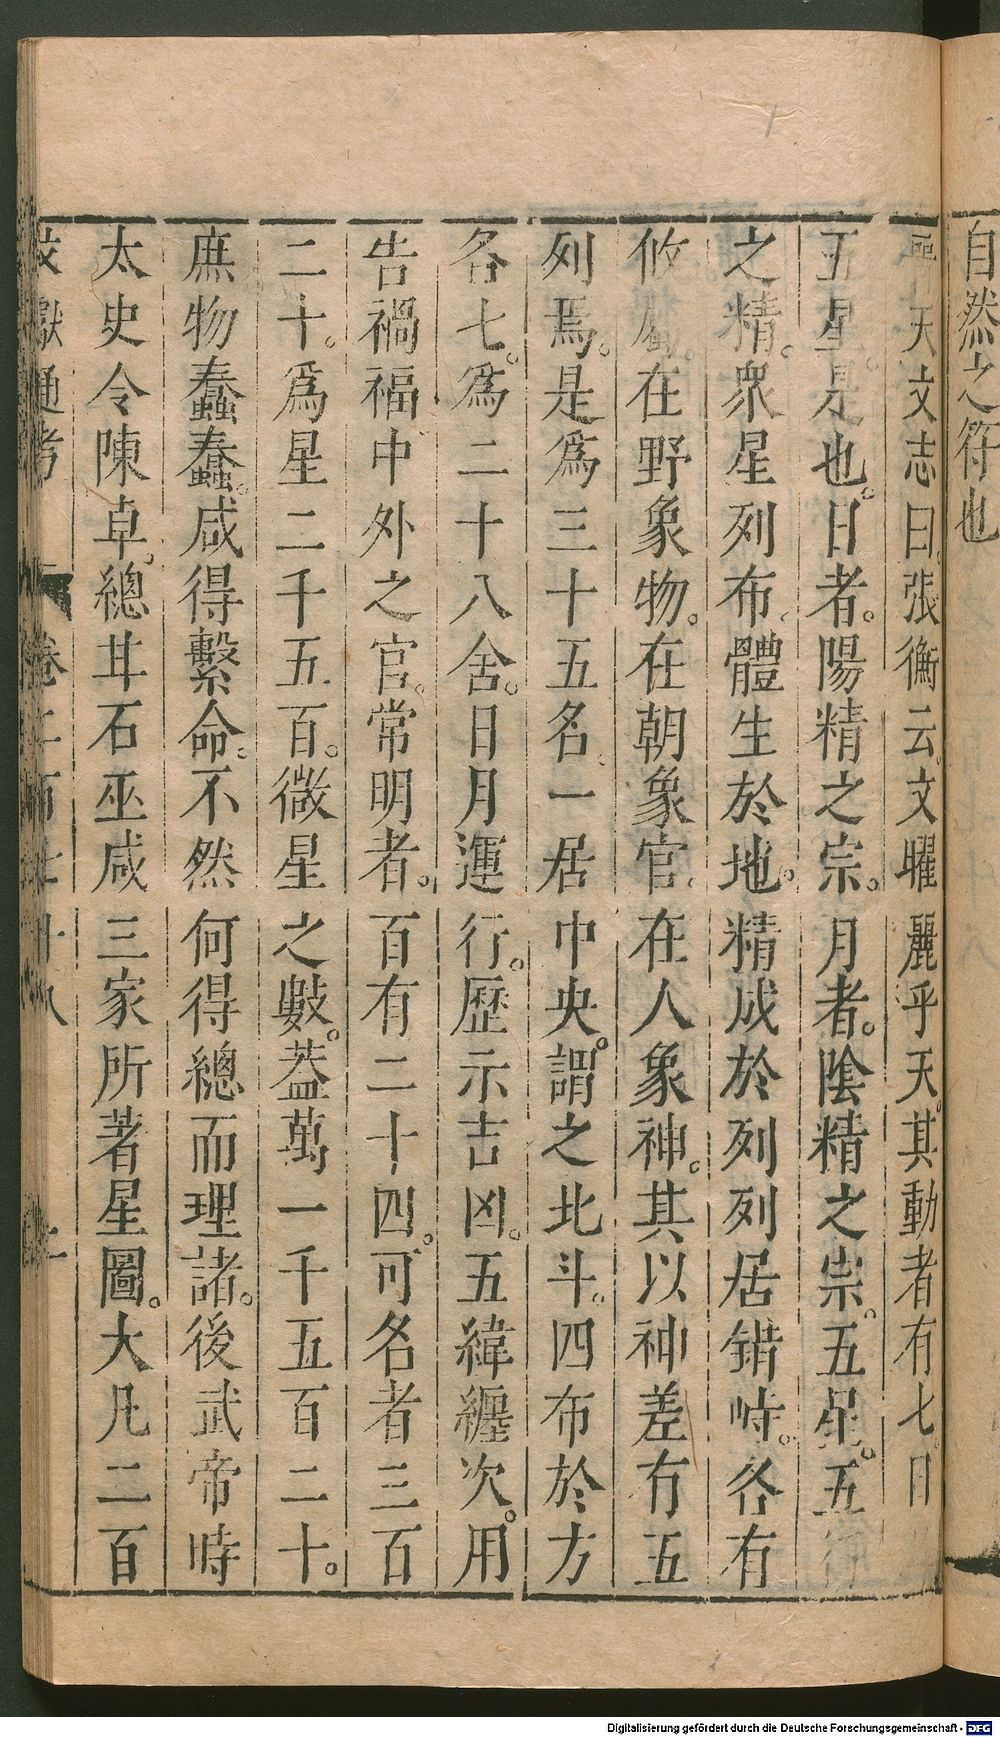 自然之符也
天文志曰張衡云文曜麗乎天其動者有七日
五星是也。日者。陽精之宗。月者。陰精之宗。五星。五行
之精。眾星列布。體生於地。精成於列列居錯峙。各有
攸屬。在野象物。在朝象官。在人象神。其以神差有五
列焉。是爲三十五名。一居中央。謂之北斗。四布於方
各七。爲二十八舍。日月運行。歷示吉凶。五緯纏次。用
告禍福中外之官。常明者。百有二十四。可名者三百
二十。爲星二千五百。微星之數。葢萬一千五百二十。
庶物蠢蠢。咸得繫命。不然何得總而理諸。後武帝時
太史令陳卓。總甘石巫咸三家所著星圖。大凡二百
文獻通考 卷二百七十八
Digitalisierung gefördert durch die Deutsche Forschungsgemeinschaft - DFG